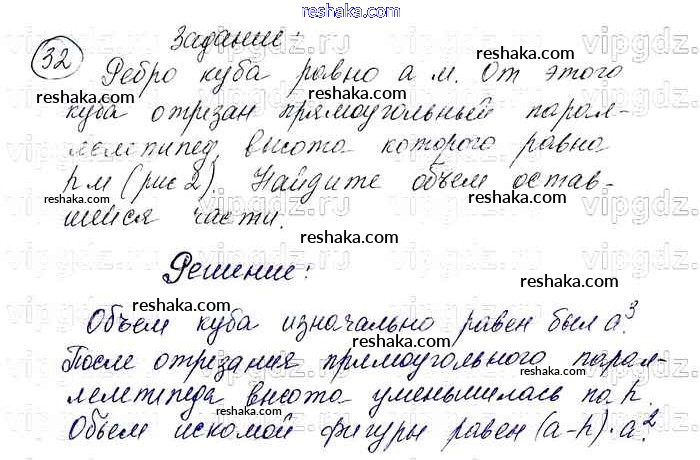 reshaka.com
32 Задание:
Ребро куба равно a м. От этого
куба отрезан прямоугольный парал-
лелепипед, высота которого равна
h м (рис 2). Найдите объем остав-
шейся части.
Решение:
Объем куба изначально равен был a³.
После отрезания прямоугольного парал-
лелепипеда высота уменьшилась на h.
Объем искомой фигуры равен (a-h)·a².